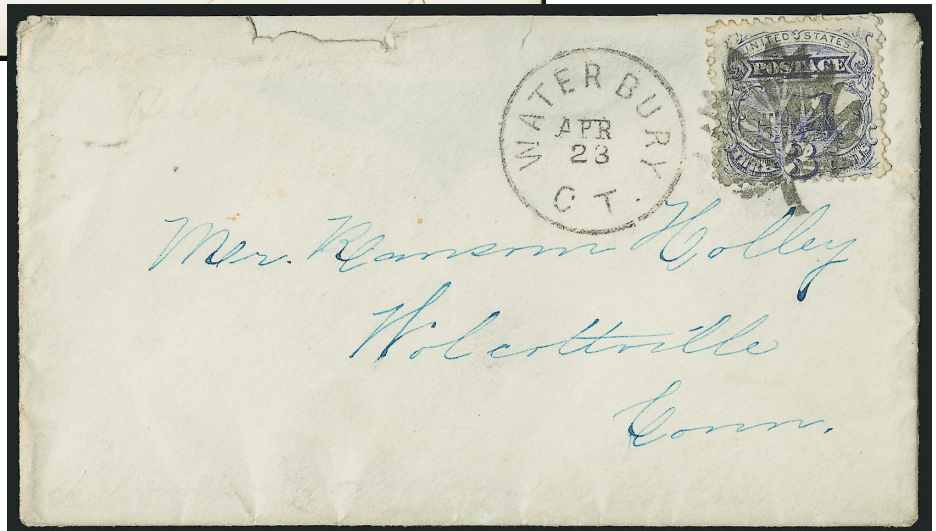 WATERBURY
APR
23
CT.
UNITED STATES
POSTAGE
3
Mr. Ransom Holley
Wolcottville
Conn.